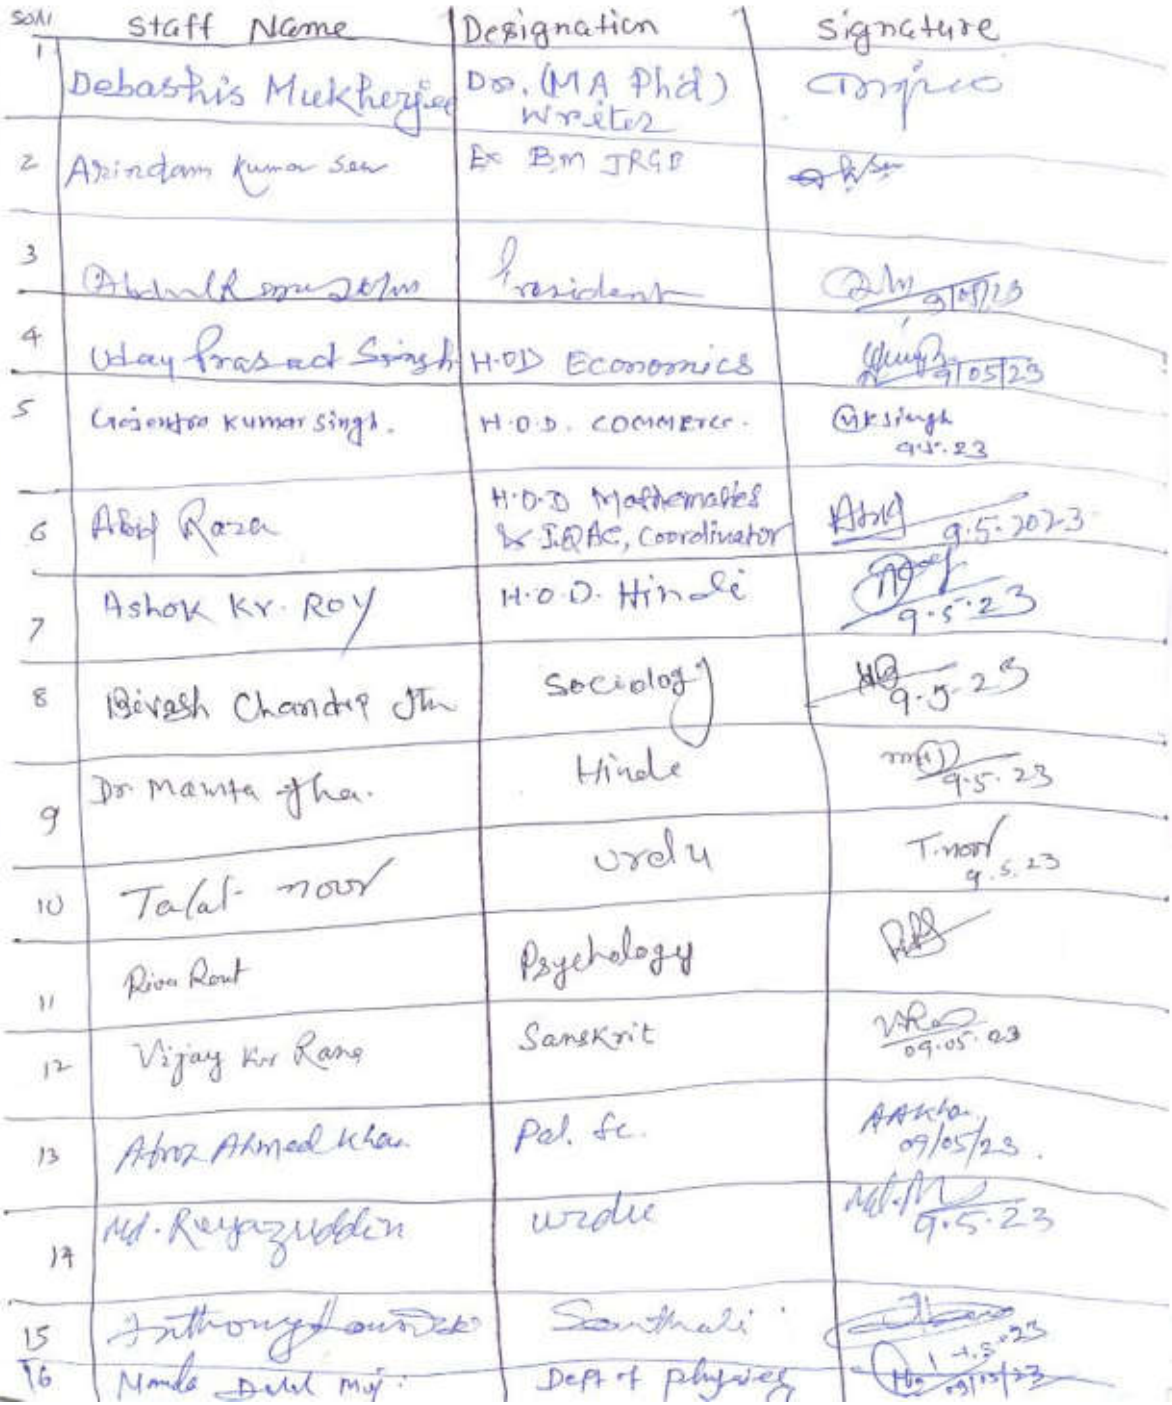 Staff Name Designation Signature
1 Debashis Mukherjee Dr. (MA Phd)
Writer
2 Arindam Kumar Sen Ex BM JRGB
3 President 9/05/23
4 Uday Prasad Singh H.OD Economics 9/05/23
5 Gajendra Kumar Singh. H.O.D. COMMERCE. GKSingh
9.5.23
6 Raza H.O.D Mathematics
& IQAC, Coordinator 9.5.2023
7 Ashok Kr. Roy H.O.D. Hindi 9.5.23
8 Chandra Sociology 9.5.23
9 Dr. Mamta Jha. Hindi 9.5.23
10 Talat noor urdu T.noor
9.5.23
11 Rout Psychology
12 Vijay Kr Rana Sanskrit 09.05.23
13 Afroz Ahmed Khan Pol. Sc. AAKhan
09/05/23.
14 Md. Reyazuddin urdu 9.5.23
15 Anthony Santhali
16 Dept of physics